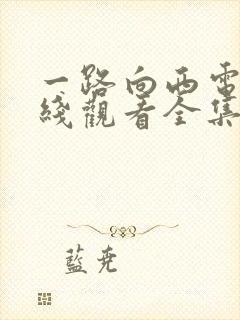 一路向西電
綫觀看全集
藍尭